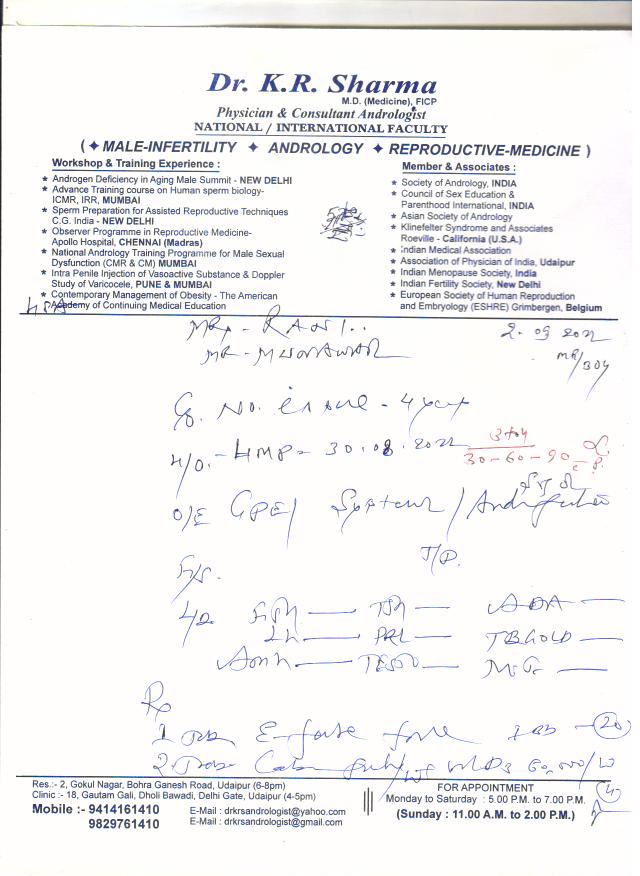 Dr. K.R. Sharma
M.D. (Medicine), FICP
Physician & Consultant Andrologist
NATIONAL / INTERNATIONAL FACULTY
( ✦ MALE-INFERTILITY ✦ ANDROLOGY ✦ REPRODUCTIVE-MEDICINE )
Workshop & Training Experience :
* Androgen Deficiency in Aging Male Summit - NEW DELHI
* Advance Training course on Human sperm biology-
ICMR, IRR, MUMBAI
* Sperm Preparation for Assisted Reproductive Techniques
C.G. India - NEW DELHI
* Observer Programme in Reproductive Medicine-
Apollo Hospital, CHENNAI (Madras)
* National Andrology Training Programme for Male Sexual
Dysfunction (CMR & CM) MUMBAI
* Intra Penile Injection of Vasoactive Substance & Doppler
Study of Varicocele, PUNE & MUMBAI
* Contemporary Management of Obesity - The American
Academy of Continuing Medical Education
Member & Associates :
* Society of Andrology, INDIA
* Council of Sex Education &
Parenthood International, INDIA
* Asian Society of Andrology
* Klinefelter Syndrome and Associates
Roeville - California (U.S.A.)
* Indian Medical Association
* Association of Physician of India, Udaipur
* Indian Menopause Society, India
* Indian Fertility Society, New Delhi
* European Society of Human Reproduction
and Embryology (ESHRE) Grimbergen, Belgium
RANI
MR -
No. issue - 4 year
H/O - LMP - 30.08.2022
30-60-90
O/E GPE/ System /
FSH — TSH —
LH — PRL — TBGOLD —
AMH —
Rx
1
2
60,000/
Res.:- 2, Gokul Nagar, Bohra Ganesh Road, Udaipur (6-8pm)
Clinic :- 18, Gautam Gali, Dholi Bawadi, Delhi Gate, Udaipur (4-5pm)
Mobile :- 9414161410
9829761410
E-Mail : drkrsandrologist@yahoo.com
E-Mail : drkrsandrologist@gmail.com
FOR APPOINTMENT
Monday to Saturday : 5.00 P.M. to 7.00 P.M.
(Sunday : 11.00 A.M. to 2.00 P.M.)